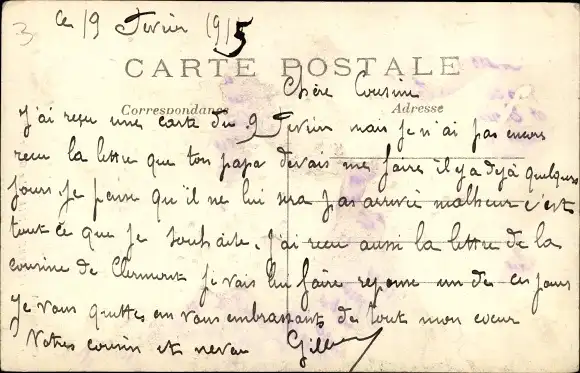 3
ce 19 Fevrier 1915
CARTE POSTALE
Chère Cousine
Correspondance Adresse
J'ai reçu une carte du 9 Fevrier mais je n'ai pas encore
recu la lettre que ton papa devais me faire il y a dejà quelques
jours je pense qu'il ne lui sera pas arrivé malheur c'est
tout ce que je souhaite. J'ai recu aussi la lettre de la
cousine de Clermont je vais lui faire reponse un de ces jours
Je vous quittes en vous embrassants de tout mon coeur
Votre cousin et neveu